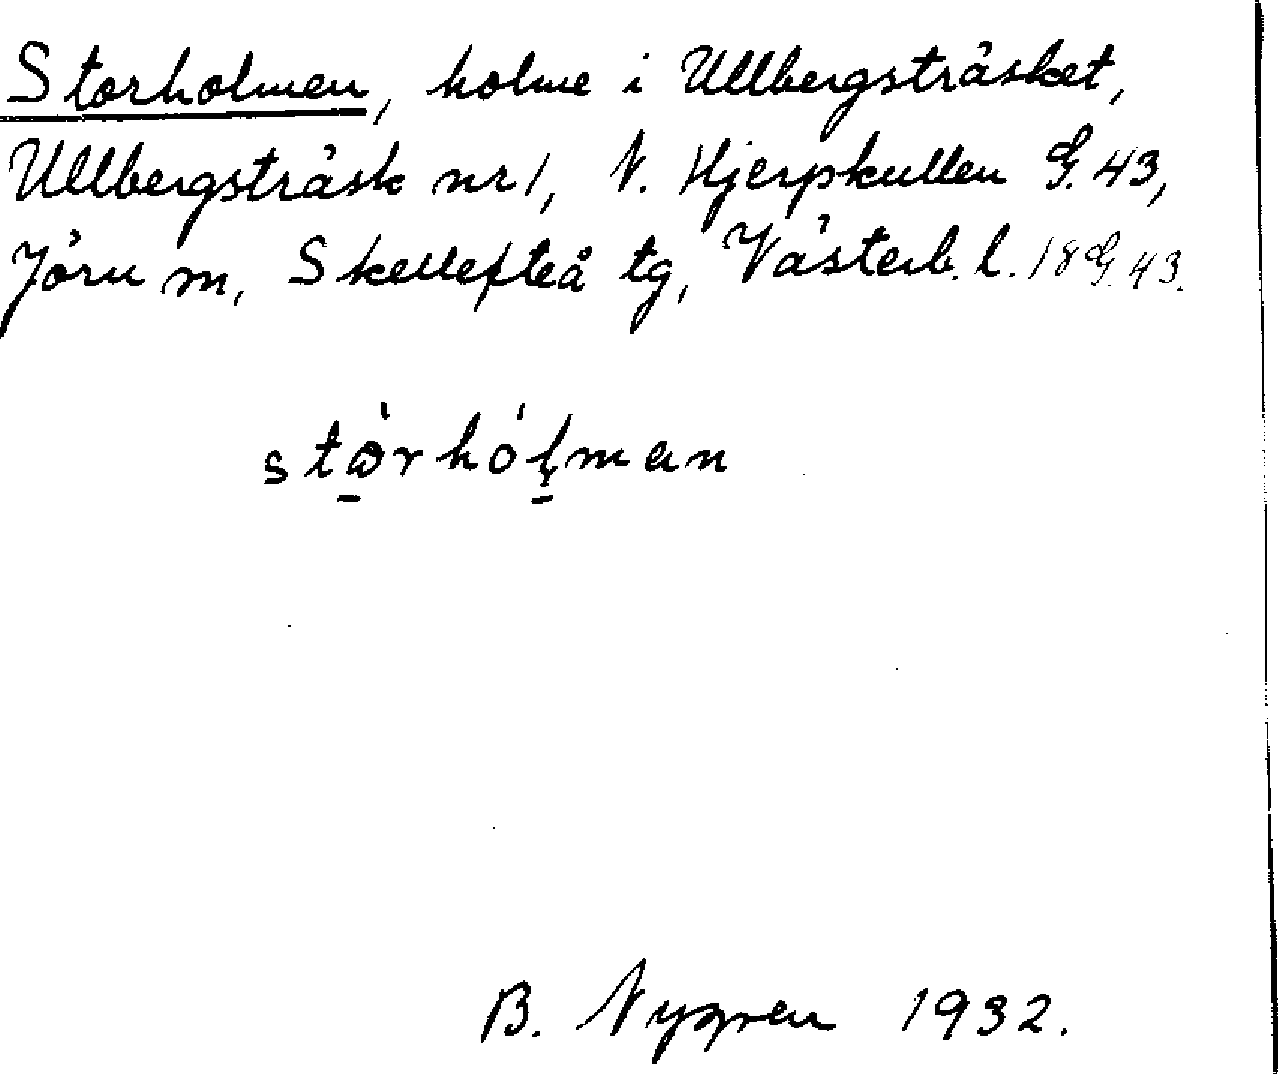 Storholmen, holme i Ullbergsträsket,
Ullbergsträsk nr 1, N. Hjerpkullen G. 43,
Jörn sn, Skellefteå tg, Västerb. l. 18 G. 43.
stòrhóļman
B. Nygren 1932.